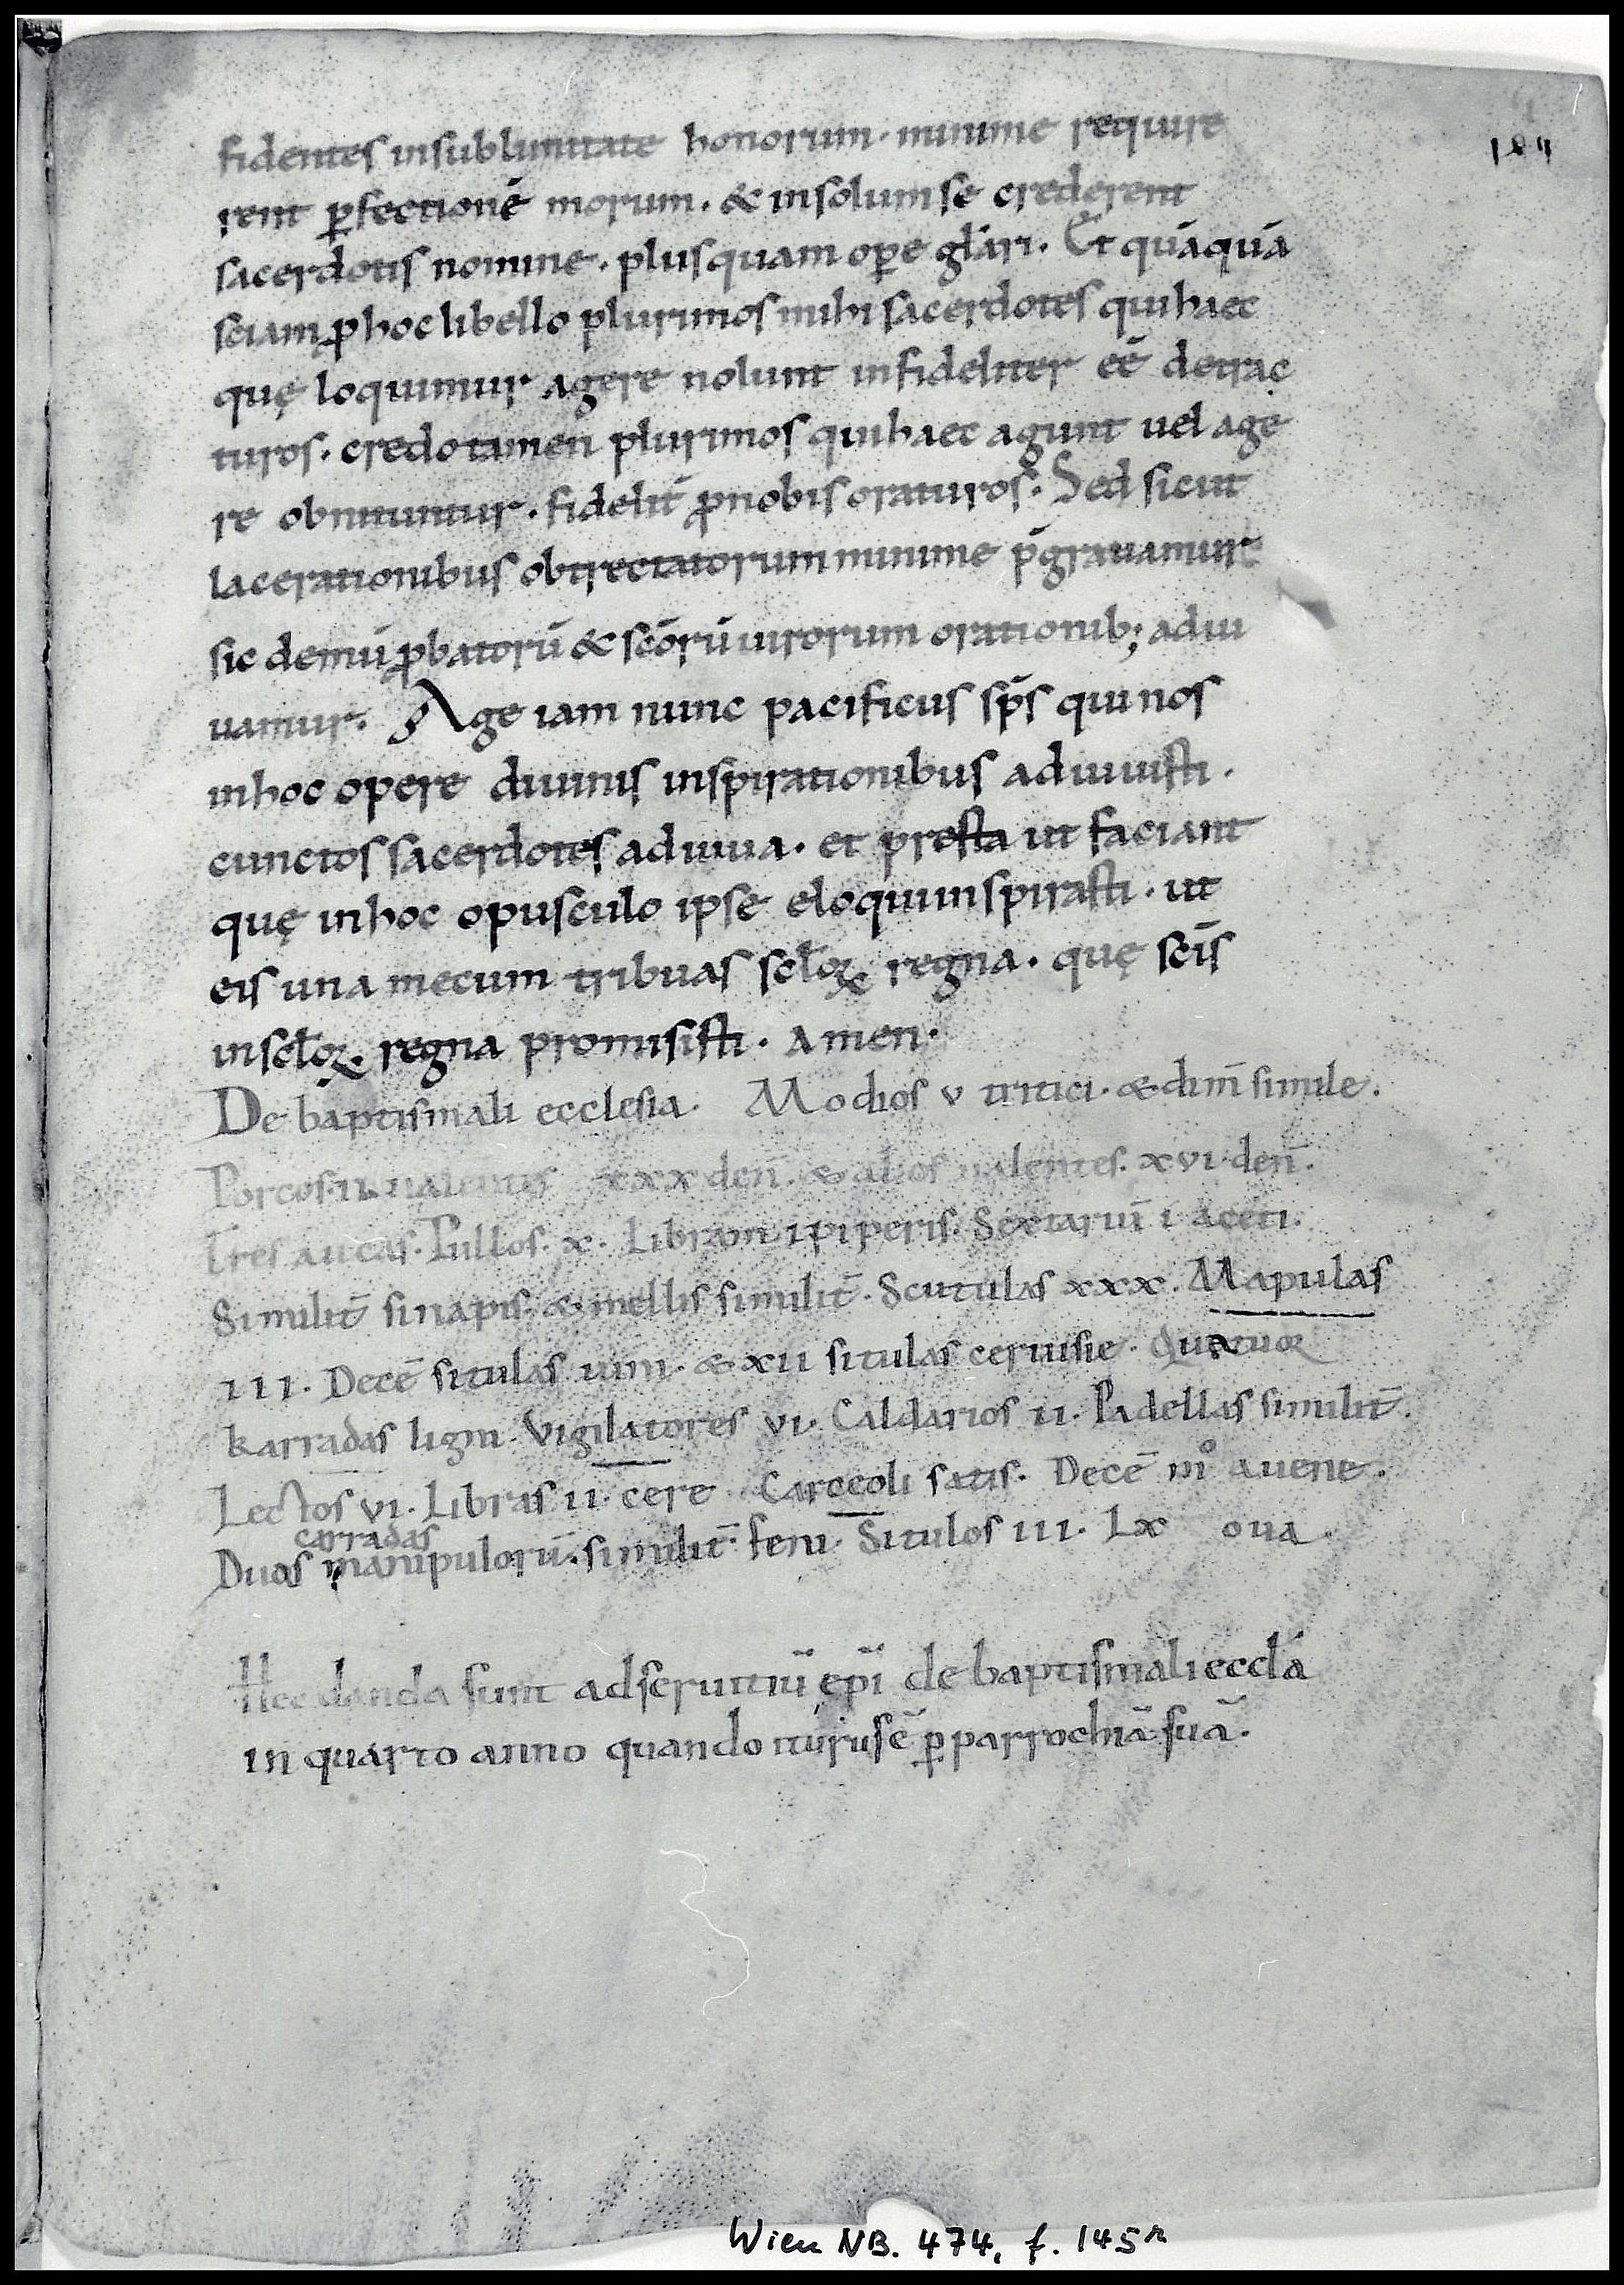 fidentes insublimitate honorum · minime require
rent ꝑfectionē morum · & insolum se crederent
sacerdotis nomine · plusquam oꝑe glari · Et quāquā
sciam ꝓ hoc libello plurimos mihi sacerdotes qui haec
quę loquimur agere nolunt infideliter eē detrac
turos · credo tamen plurimos qui haec agunt uel age
re obnituntur · fidelit̄ ꝓnobis oraturos · Sed sicut
lacerationibus obtrectatorum minime p̄grauamur
sic demū ꝓbatorū & scōrū uirorum orationib; adiu
uamur. Age iam nunc pacificus sp̄s qui nos
inhoc opere diuinis inspirationibus adiuuisti ·
cunctos sacerdotes adiuua · et presta ut faciant
quę inhoc opusculo ipse eloqui inspirasti · ut
eis una mecum tribuas scl̄oꝝ regna · quę sc̄is
in scl̄oꝝ regna promisisti · Amen ·
De baptismali ecclesia · Modios v tritici · & dim̄ simile .
Porcos · ii · xxx den̄ · & alios ualentes · xvi · den̄ ·
Tres aucas · Pullos · x · Libram · i piperis · Sextariū i aceti ·
Similit̄ sinapis · & mellis similit̄ · Scutulas xxx · Mapulas
iii · Decē situlas uini · & xii situlas ceruisie · Quatuor
karradas ligni · Vigilatores vi · Caldarios ii · Padellas similit̄ ·
Lectos vi · Libras ii · cere Carceoli satis · Decē m̊ auene ·
carradas
Duas manipulorū · similit̄ · feni · Situlos iii · Lx oua ·
Hec danda sunt ad seruitiū ep̄i de baptismali eccl̄a
in quarto anno quando iturus ē ꝑ parrochiā suā ·
Wien NB. 474, f. 145r